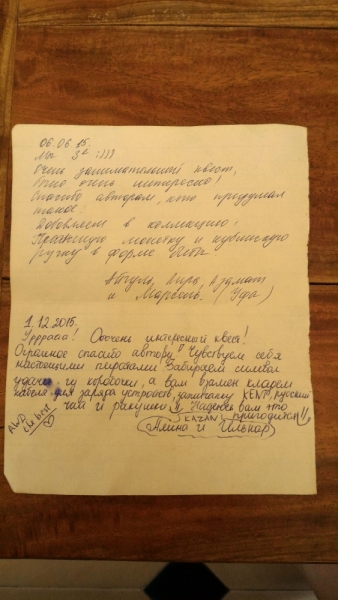 06.06.15.
Мы 3е :)))
Очень занимательный квест,
было очень интересно!
Спасибо авторам, кто придумал
такое!
Добавляем в коллекцию,
монетку и кубинскую
ручку в форме
Айгуль, Азамат
и Марсель. (Уфа)
1.12.2015.
Урраааа! Оооочень интересный квест!
Огромное спасибо автору! Чувствуем себя
настоящими пиратами. Забираем символ
удачи из коробочки, а вам взамен кладем
кабель для заряда устройств, зажигалку KENT, русский
чай и ракушки!! Надеюсь вам это
KAZAN пригодится!!
Алина и Ильнар